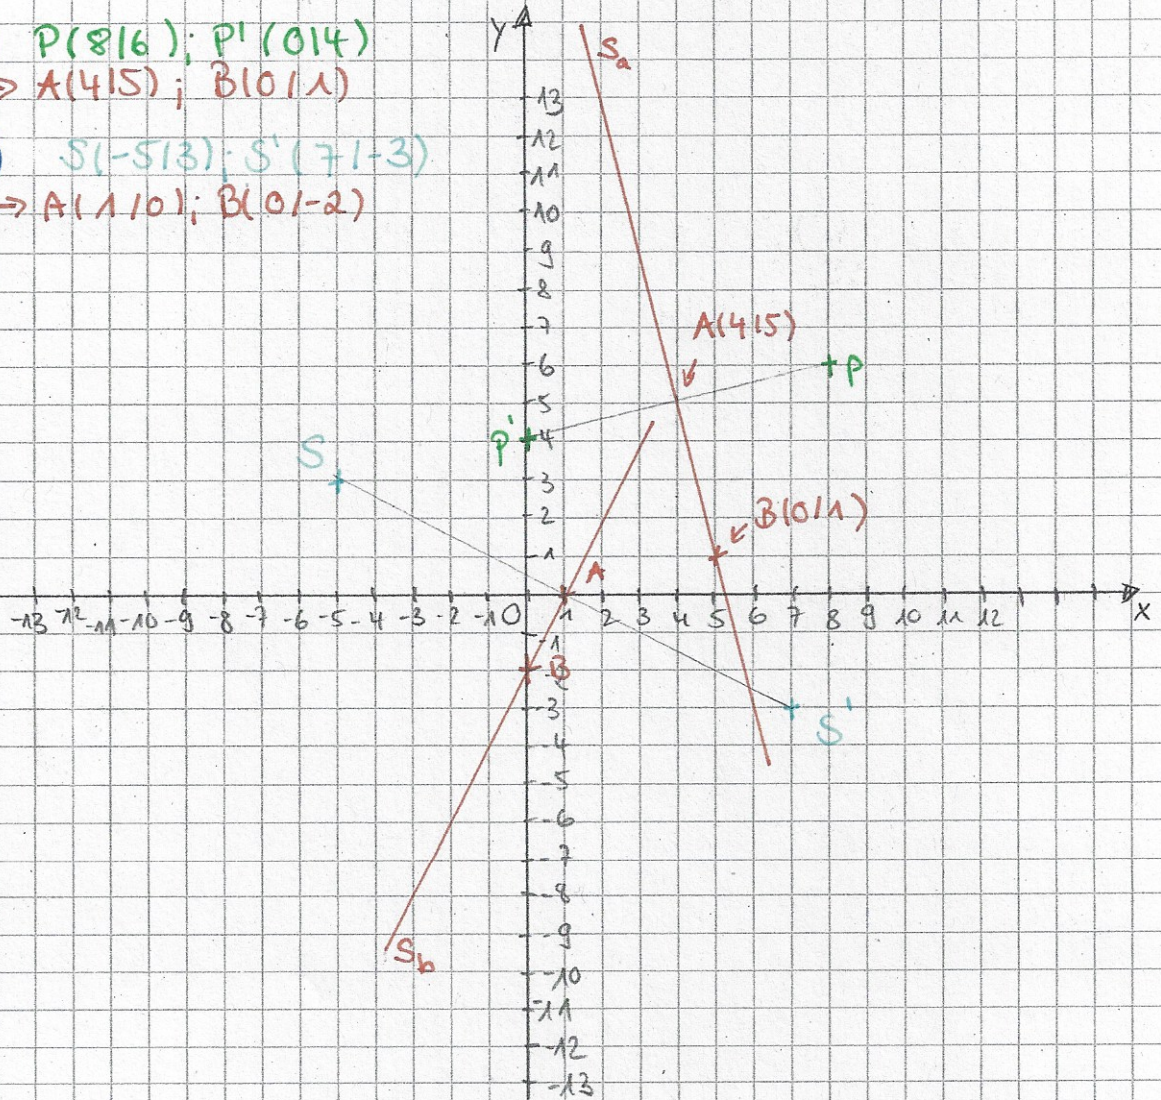 P(8/6); P'(0/4)
=> A(4/5); B(0/1)
) S(-5/3); S'(7/-3)
=> A(1/0); B(0/-2)
y
Sa
13
12
11
10
9
8
7
A(4/5)
6
P
5
P'
4
S
3
2
B(0/1)
1
A
-13 -12 -11 -10 -9 -8 -7 -6 -5 -4 -3 -2 -1 0 1 2 3 4 5 6 7 8 9 10 11 12
x
-1
B
-3
S'
-4
-5
-6
-7
-8
-9
Sb
-10
-11
-12
-13